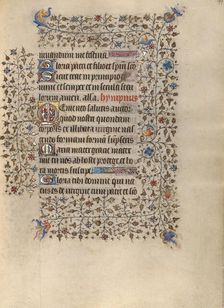 Gloria patri et filio et spui sco
Sicut erat in principio
et nunc et semper et in secula secu
lorum amen. alla. hympnus
Memento salutis auctor
quod nostri quondam
corporis ex illibata virgine nas
cendo formam sumpseris
Maria mater gracie mater
tu nos ab hoste protege et ho
ra mortis suscipe
Gloria tibi domine qui na
tus es de virgine cum patre et sco